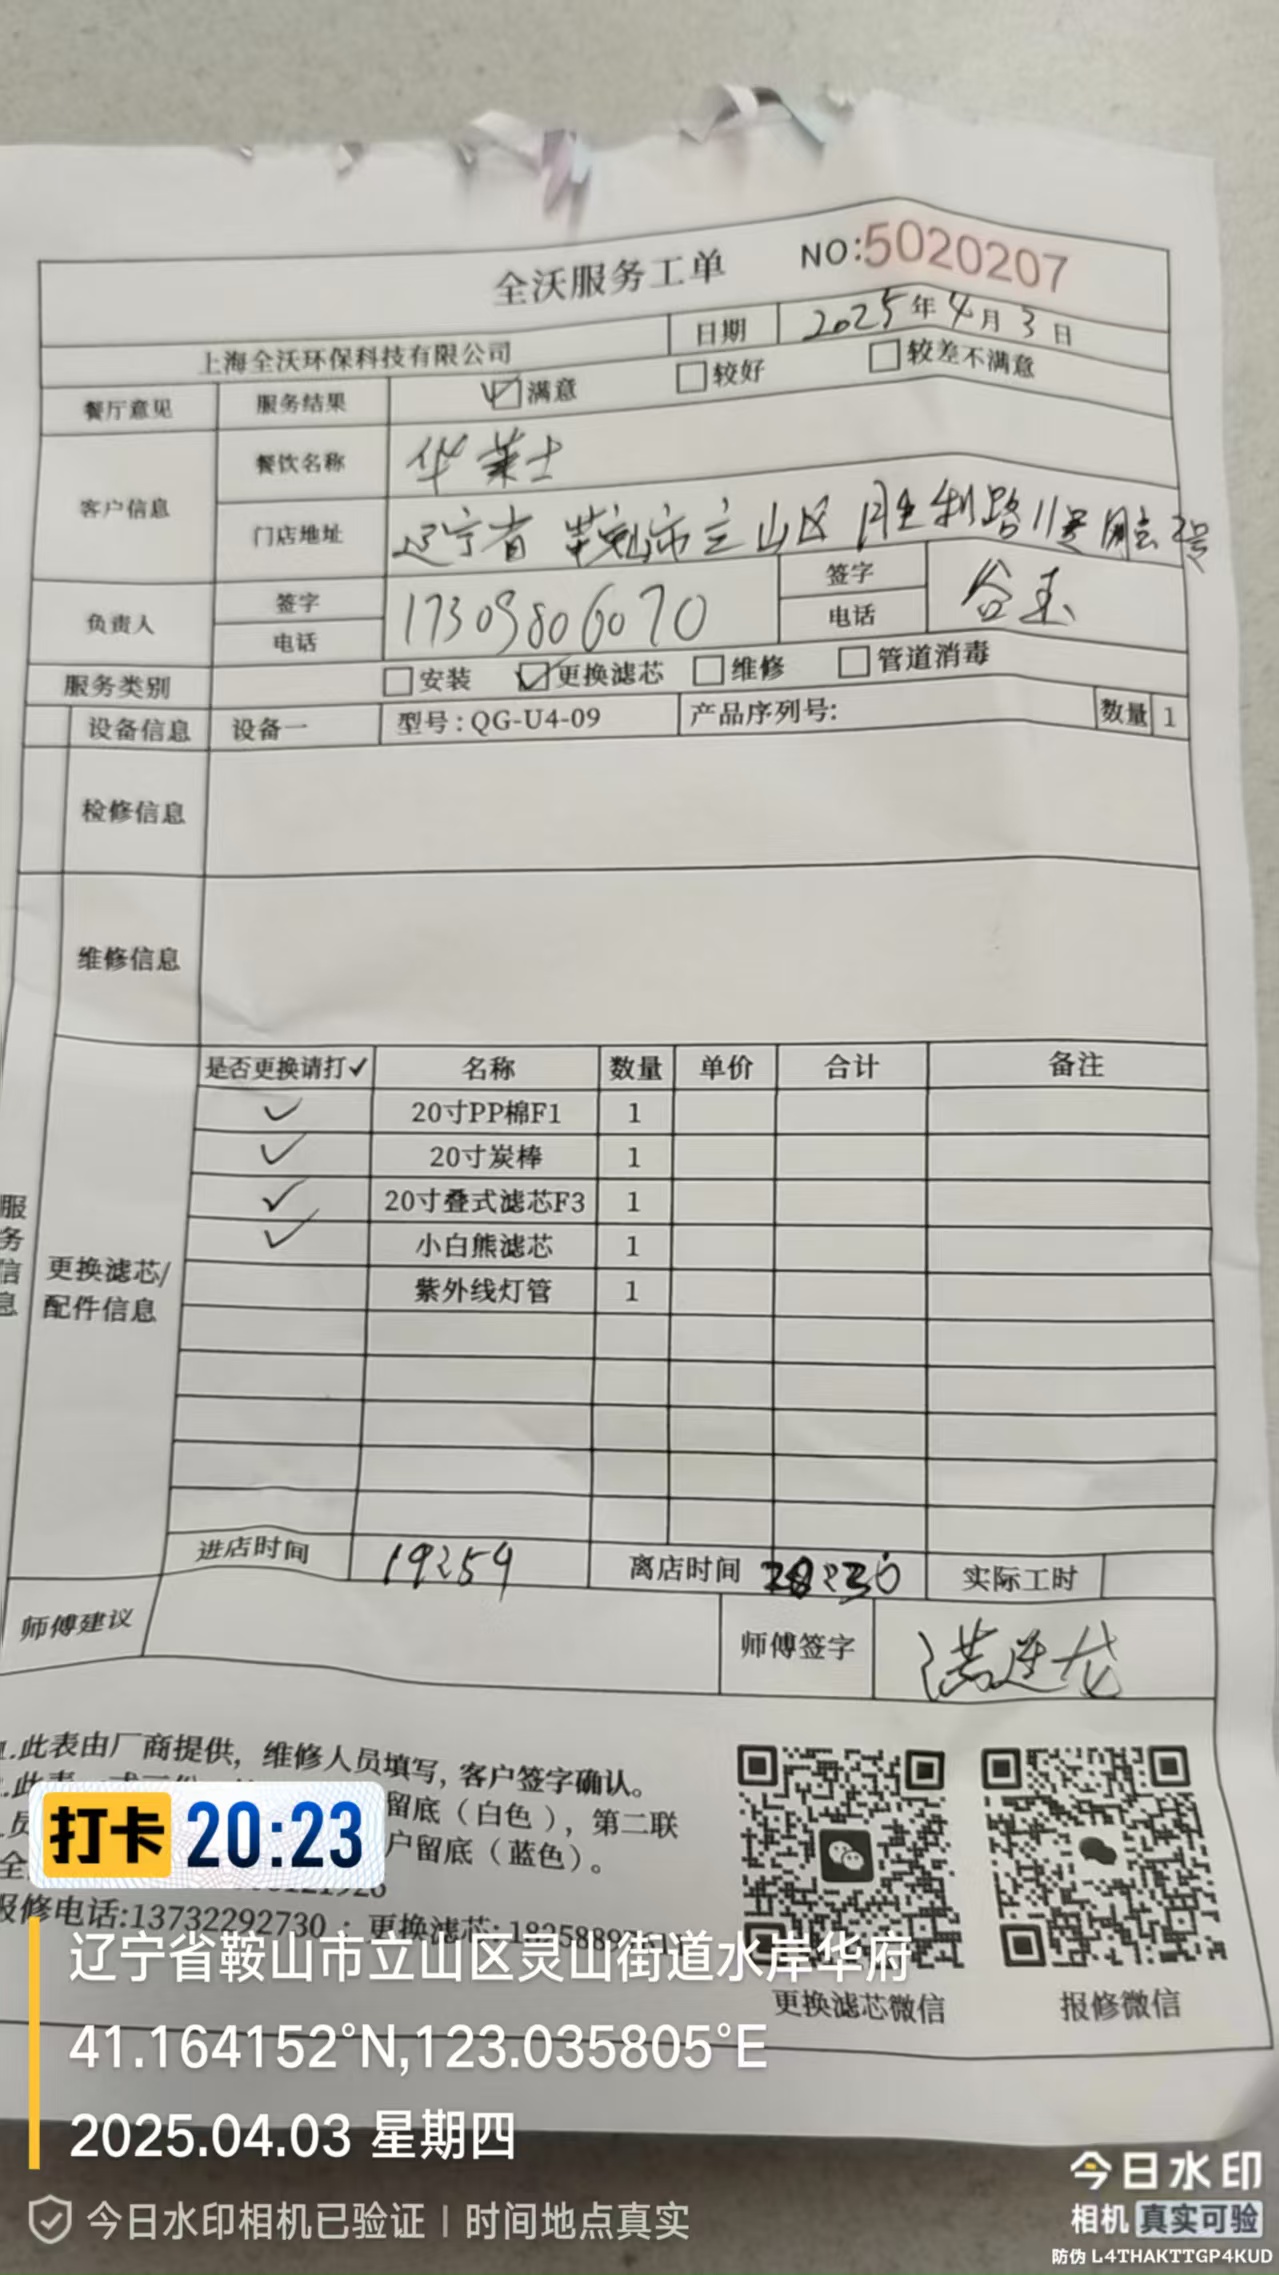 全沃服务工单 NO:5020207
上海全沃环保科技有限公司 日期 2025年4月3日
餐厅意见 服务结果 满意 较好 较差不满意
客户信息 餐饮名称 华莱士
门店地址 辽宁省鞍山市立山区胜利路11号
负责人 签字 电话 17309806070 签字 电话 谷玉
服务类别 安装 更换滤芯 维修 管道消毒
设备信息 设备一 型号:QG-U4-09 产品序列号: 数量 1
检修信息
维修信息
服务信息
更换滤芯/配件信息
是否更换请打✓ 名称 数量 单价 合计 备注
✓ 20寸PP棉F1 1
✓ 20寸炭棒 1
✓ 20寸叠式滤芯F3 1
✓ 小白熊滤芯 1
紫外线灯管 1
进店时间 19:59 离店时间 20:30 实际工时
师傅建议 师傅签字
1.此表由厂商提供，维修人员填写,客户签字确认。
留底（白色），第二联
户留底（蓝色）。
报修电话:13732292730 更换滤芯:
更换滤芯微信 报修微信
打卡 20:23
辽宁省鞍山市立山区灵山街道水岸华府
41.164152°N,123.035805°E
2025.04.03 星期四
今日水印相机已验证 | 时间地点真实
今日水印
相机 真实可验
防伪 L4THAKTTGP4KUD